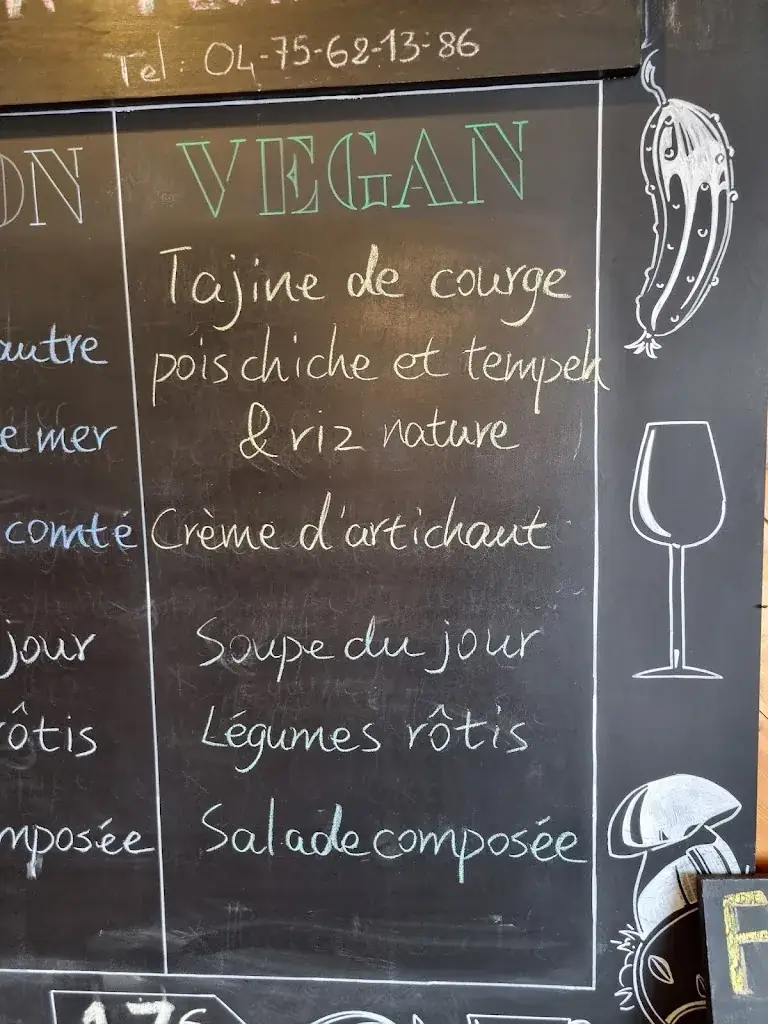 Tel: 04-75-62-13-86
VEGAN
Tajine de courge
pois chiche et tempeh
& riz nature
Crème d'artichaut
Soupe du jour
Légumes rôtis
Salade composée
autre
mer
comté
jour
rôtis
F